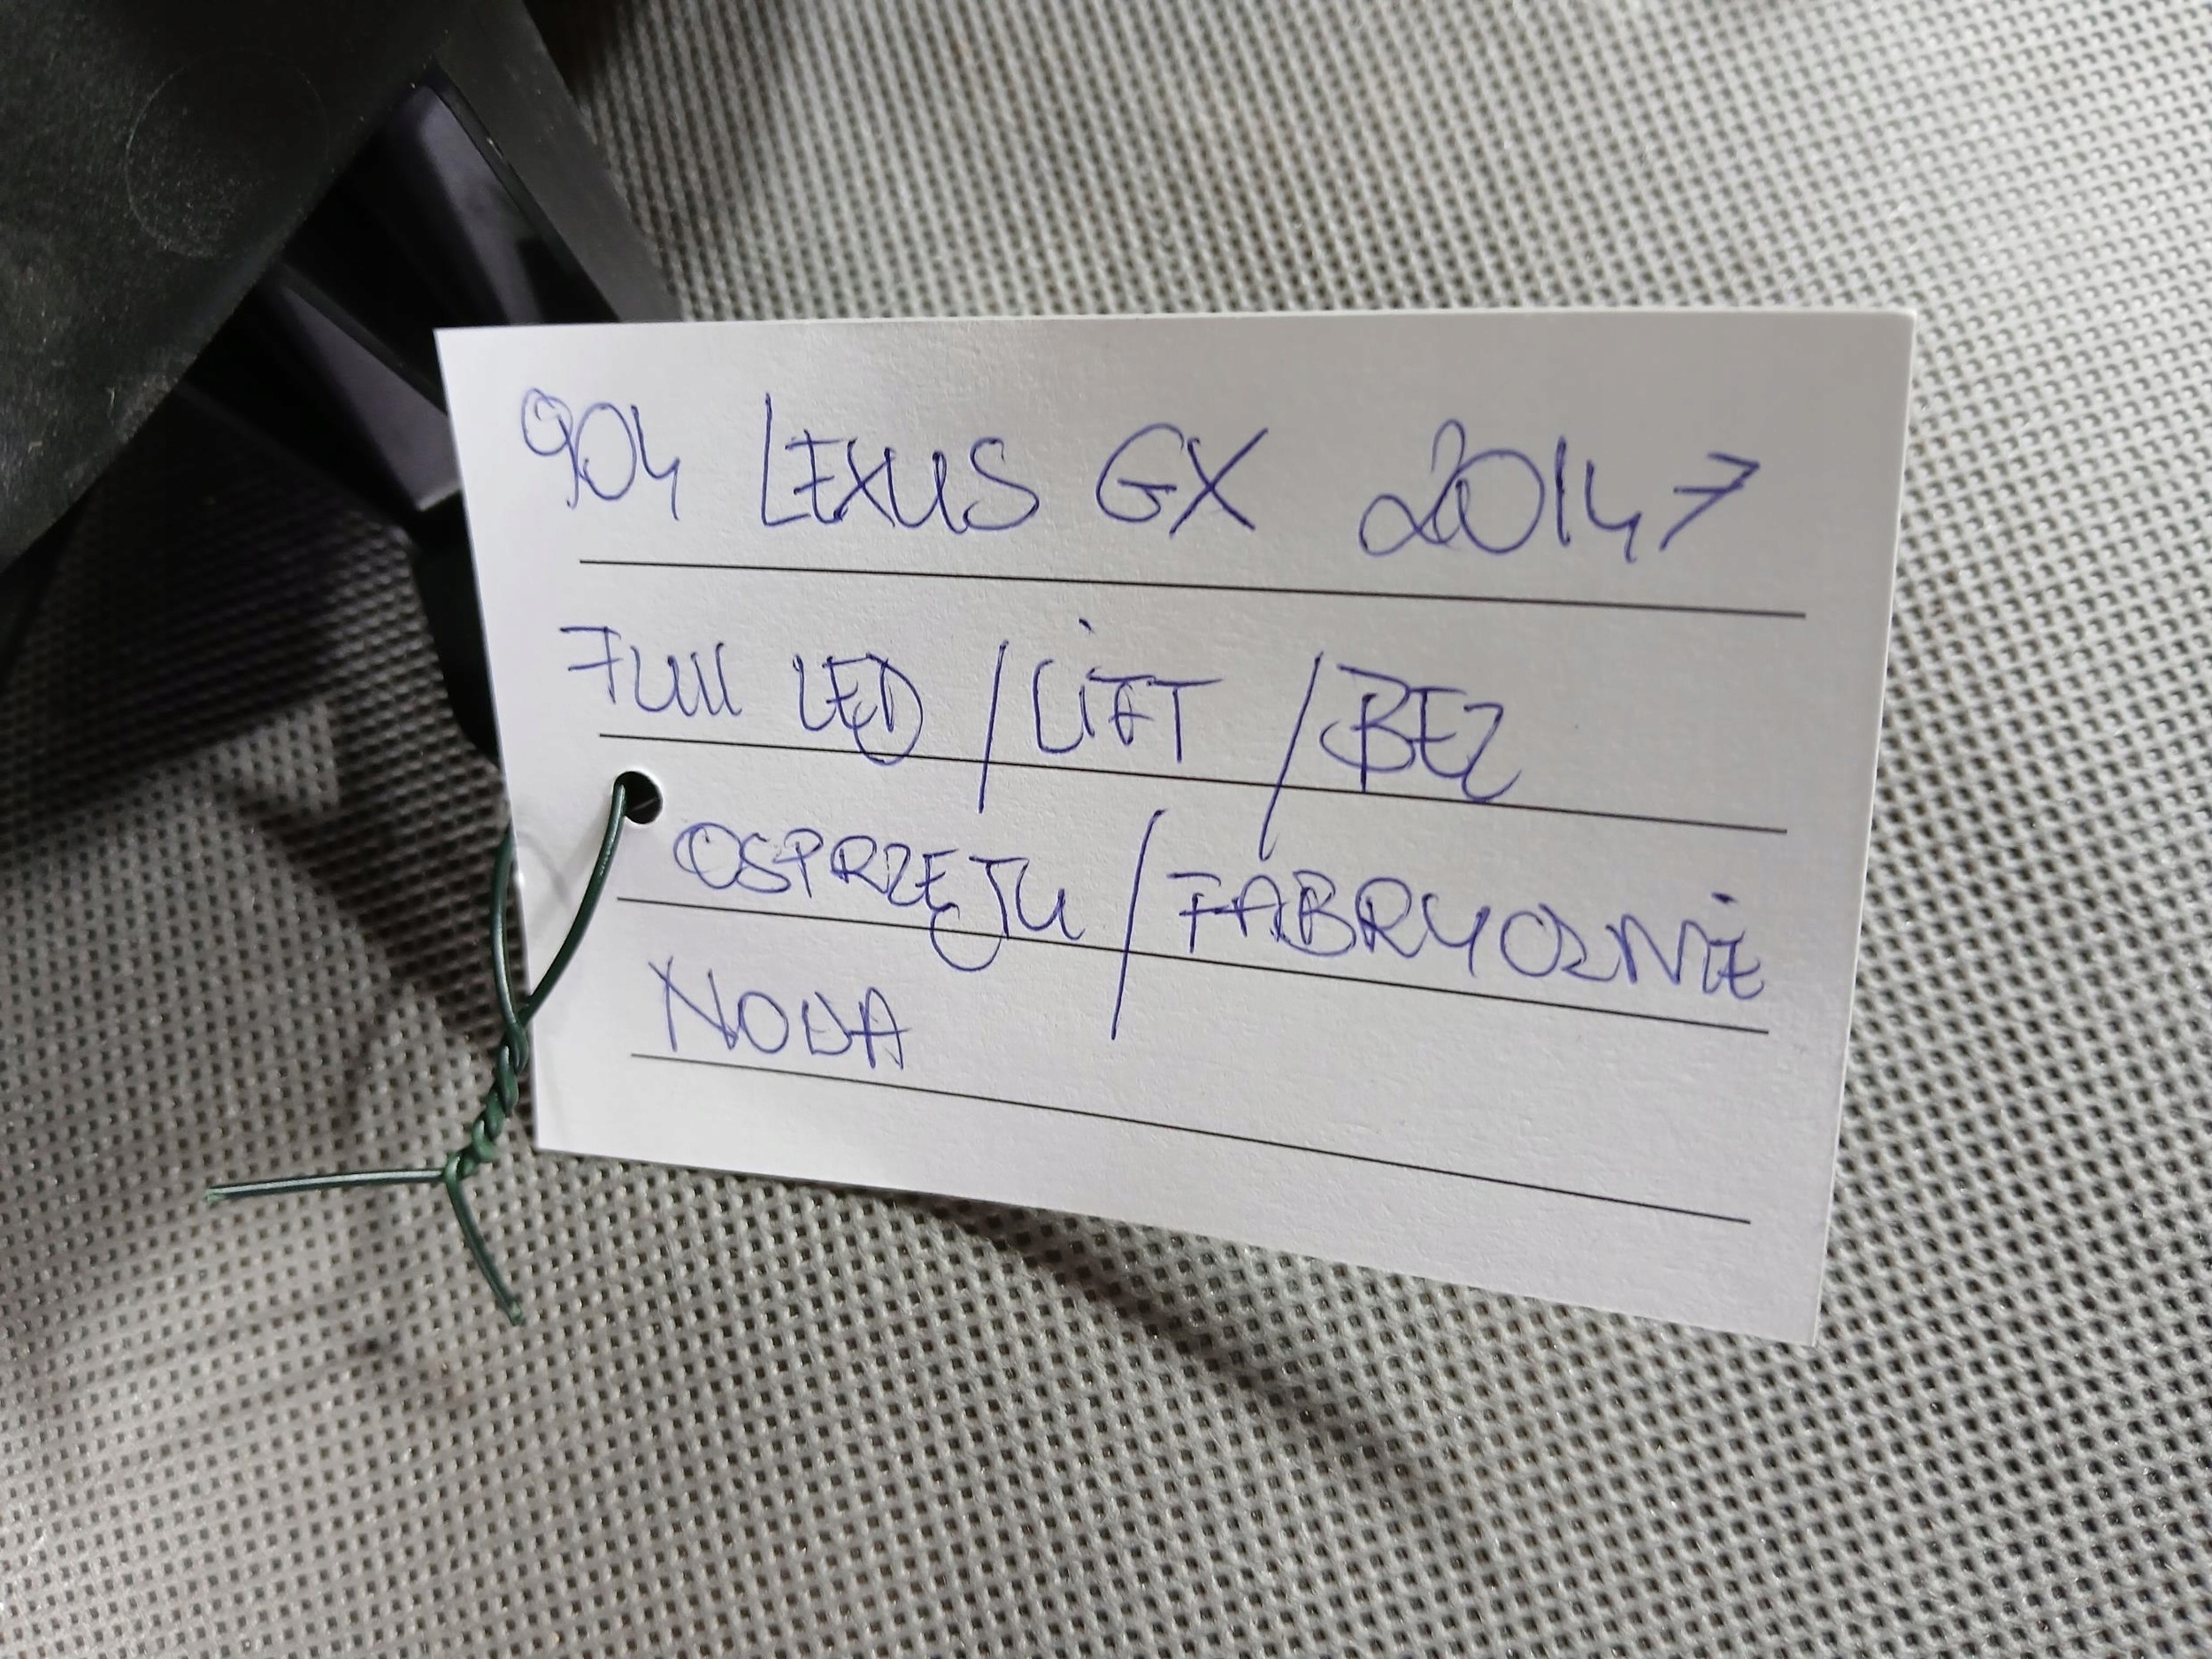 904 LEXUS GX 2014 >
FULL LED / LiFT / BEZ
OSPRZĘTU / FABRYCZNiE
NOWA